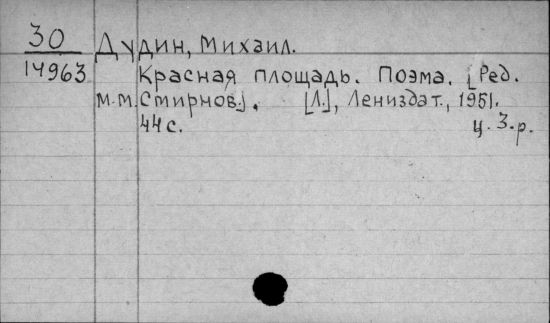 30 Дудин, Михаил.
14963 Красная площадь. Поэма. [Ред.
М.М. Смирнов]. [Л.], Лениздат, 1951.
44 с. ц. 3.р.